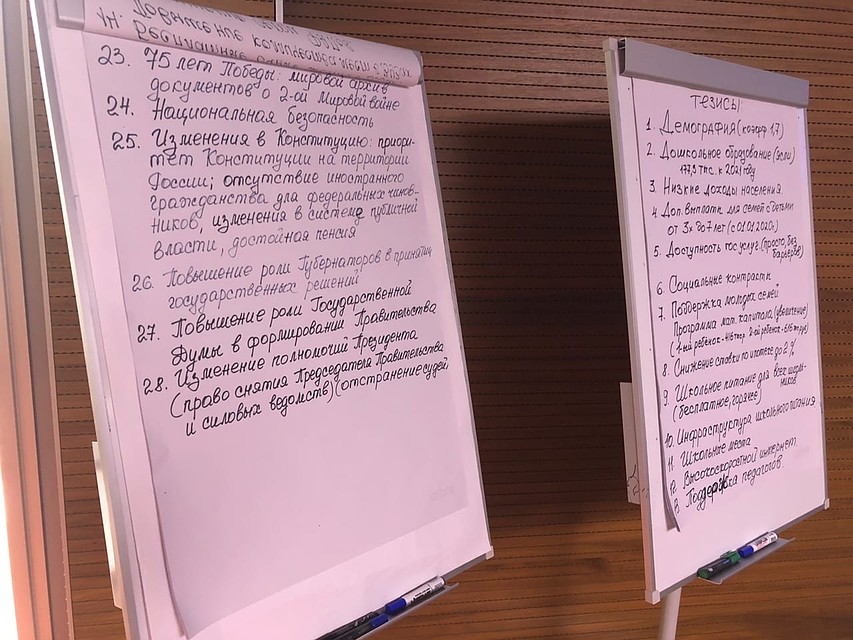 Повышение
23. 75 лет Победы: мировой архив
документов о 2-ой Мировой войне
24. Национальная безопасность
25. Изменения в Конституцию: приори-
тет Конституции на территории
России; отсутствие иностранного
гражданства для федеральных чинов-
ников, изменения в системе публичной
власти, достойная пенсия
26. Повышение роли Губернаторов в принятии
государственных решений
27. Повышение роли Государственной
Думы в формировании Правительства
28. Изменение полномочий Президента
(право снятия Председателя Правительства
и силовых ведомств) (отстранение судей
Тезисы:
1. Демография (коэфф. 1,7)
2. Дошкольное образование (ясли)
177,5 тыс. к 2021 году
3. Низкие доходы населения
4. Доп. выплаты для семей с детьми
от 3х до 7 лет (с 01.01.2020г.)
5. Доступность гос услуг (просто, без
барьеров)
6. Социальные контракты
7. Поддержка молодых семей
Программа мат. капитала (увеличение)
(1-ый ребенок - 466 тыр 2-ой ребенок - 616 тыр)
8. Снижение ставки по ипотеке до 2%
9. Школьное питание для всех школь-
ников
(бесплатное, горячее)
10. Инфраструктура школьного питания
11. Школьные места
12. Высокоскоростной интернет
13. Поддержка педагогов.